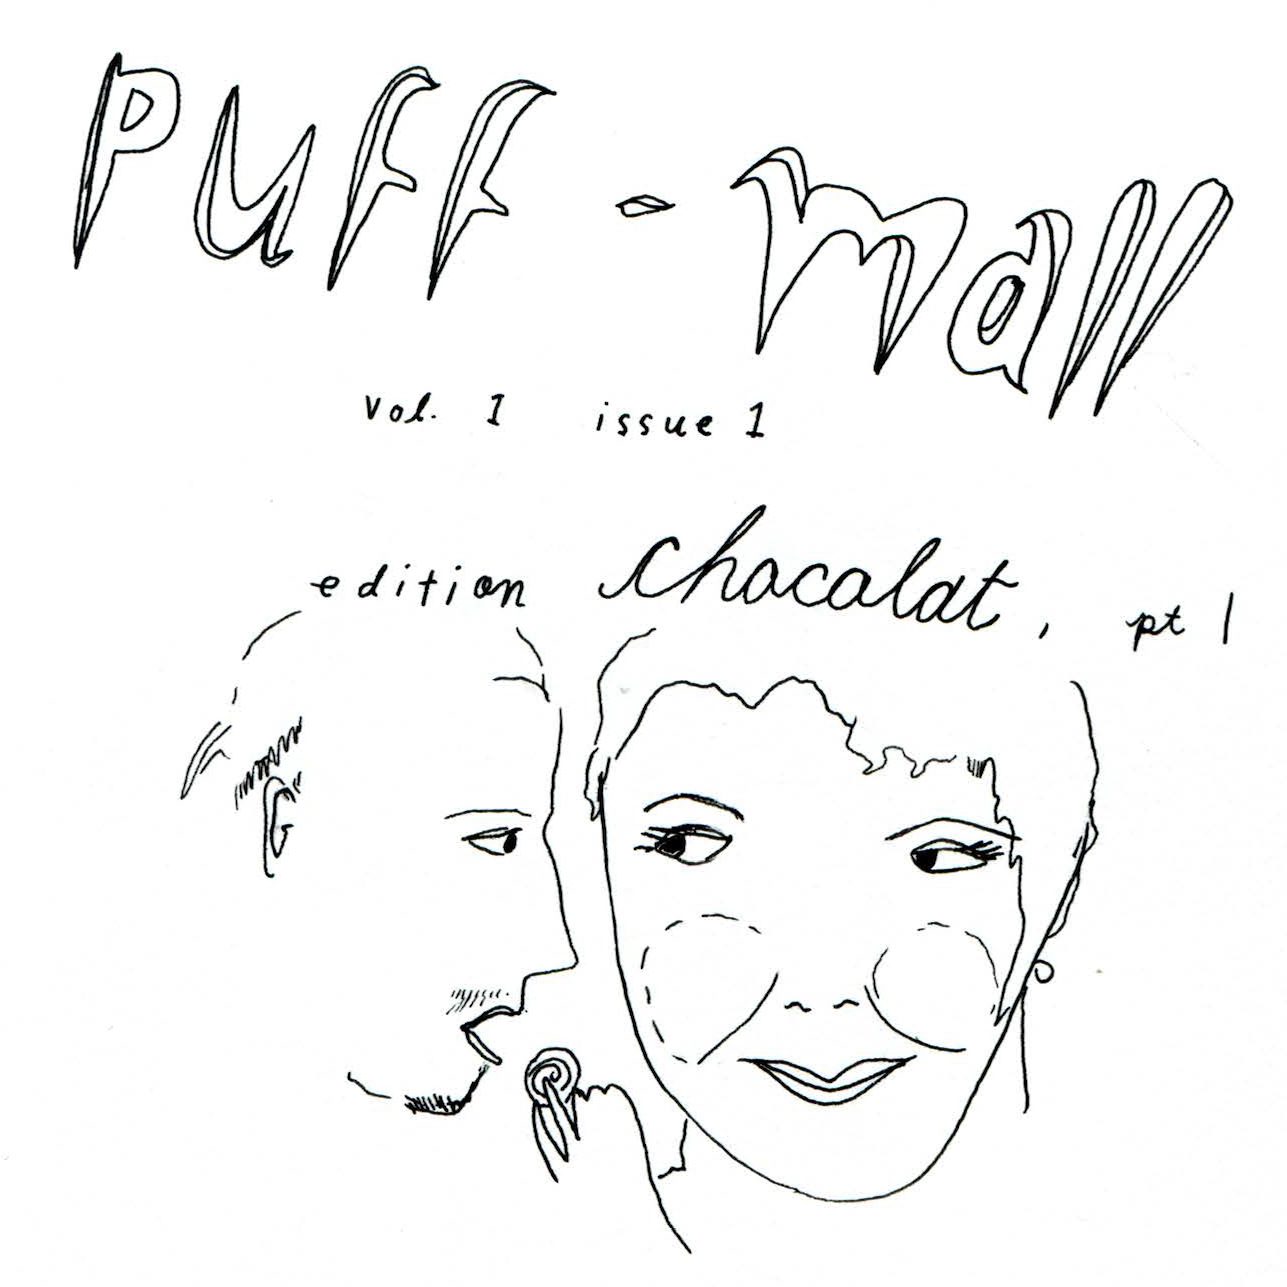 Puff - mall
vol. I issue 1
edition chacalat, pt 1